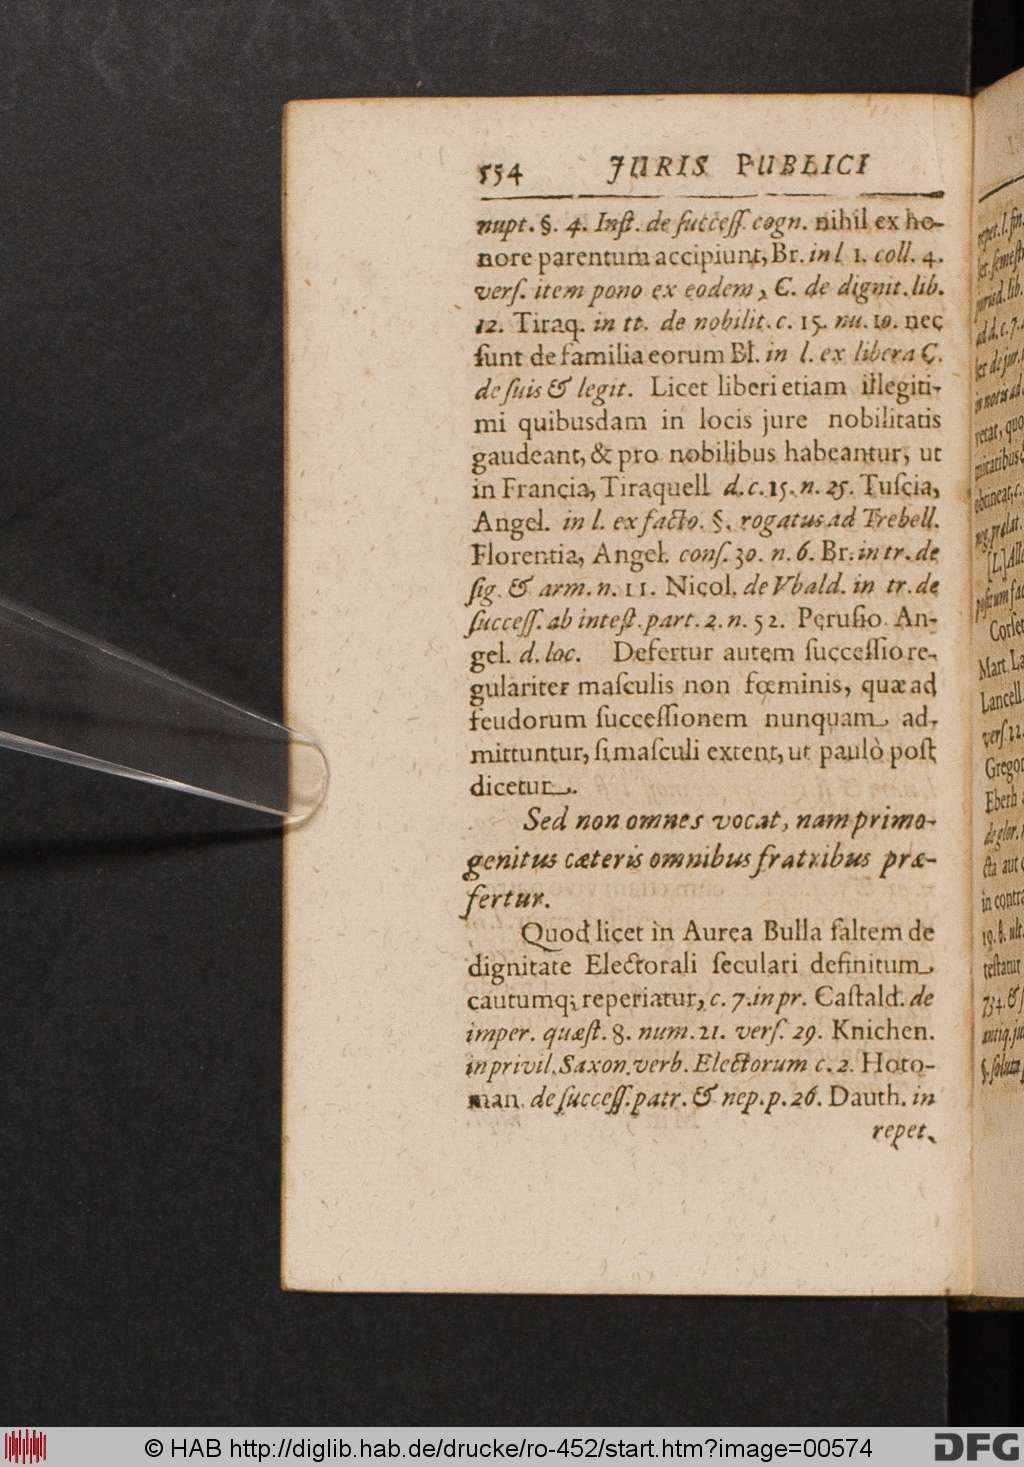 554 JURIS PUBLICI
nupt. §. 4. Inſt. de ſucceſſ. cogn. nihil ex ho-
nore parentum accipiunt, Br. in l 1. coll. 4.
verſ. item pono ex eodem, C. de dignit. lib.
12. Tiraq. in tt. de nobilit. c. 15. nu. 10. nec
ſunt de familia eorum Bl. in l. ex libera C.
de ſuis & legit. Licet liberi etiam illegiti-
mi quibusdam in locis jure nobilitatis
gaudeant, & pro nobilibus habeantur, ut
in Francia, Tiraquell d. c. 15. n. 25. Tuſcia,
Angel. in l. ex facto. §. rogatus ad Trebell.
Florentia, Angel. conſ. 30. n. 6. Br. in tr. de
ſig. & arm. n. 11. Nicol. de Vbald. in tr. de
ſucceſſ. ab inteſt. part. 2. n. 52. Peruſio An-
gel. d. loc. Defertur autem ſucceſſio re-
gulariter maſculis non fœminis, quæ ad
feudorum ſucceſſionem nunquam ad-
mittuntur, ſi maſculi extent, ut paulò poſt
dicetur.
Sed non omnes vocat, nam primo-
genitus cæteris omnibus fratribus præ-
fertur.
Quod licet in Aurea Bulla ſaltem de
dignitate Electorali ſeculari definitum
cautumq; reperiatur, c. 7. in pr. Caſtald. de
imper. quæſt. 8. num. 21. verſ. 29. Knichen.
in privil. Saxon. verb. Electorum c. 2. Hoto-
man. de ſucceſſ. patr. & nep. p. 26. Dauth. in
repet.
repet. l. ſin
ad d. c. 7.
ſer de jur.
in notis ad
verat, quo
obtineat, c.
[L.] Alle
poſitum fac
Corſet
Mart. La
Lancell.
verſ. 22.
Gregor
Eberh a
de glor.
cta aut
in contra
19. §. ult.
teſtatur
734. & ſ
antiq. ju
§. ſoluta
© HAB http://diglib.hab.de/drucke/ro-452/start.htm?image=00574
DFG